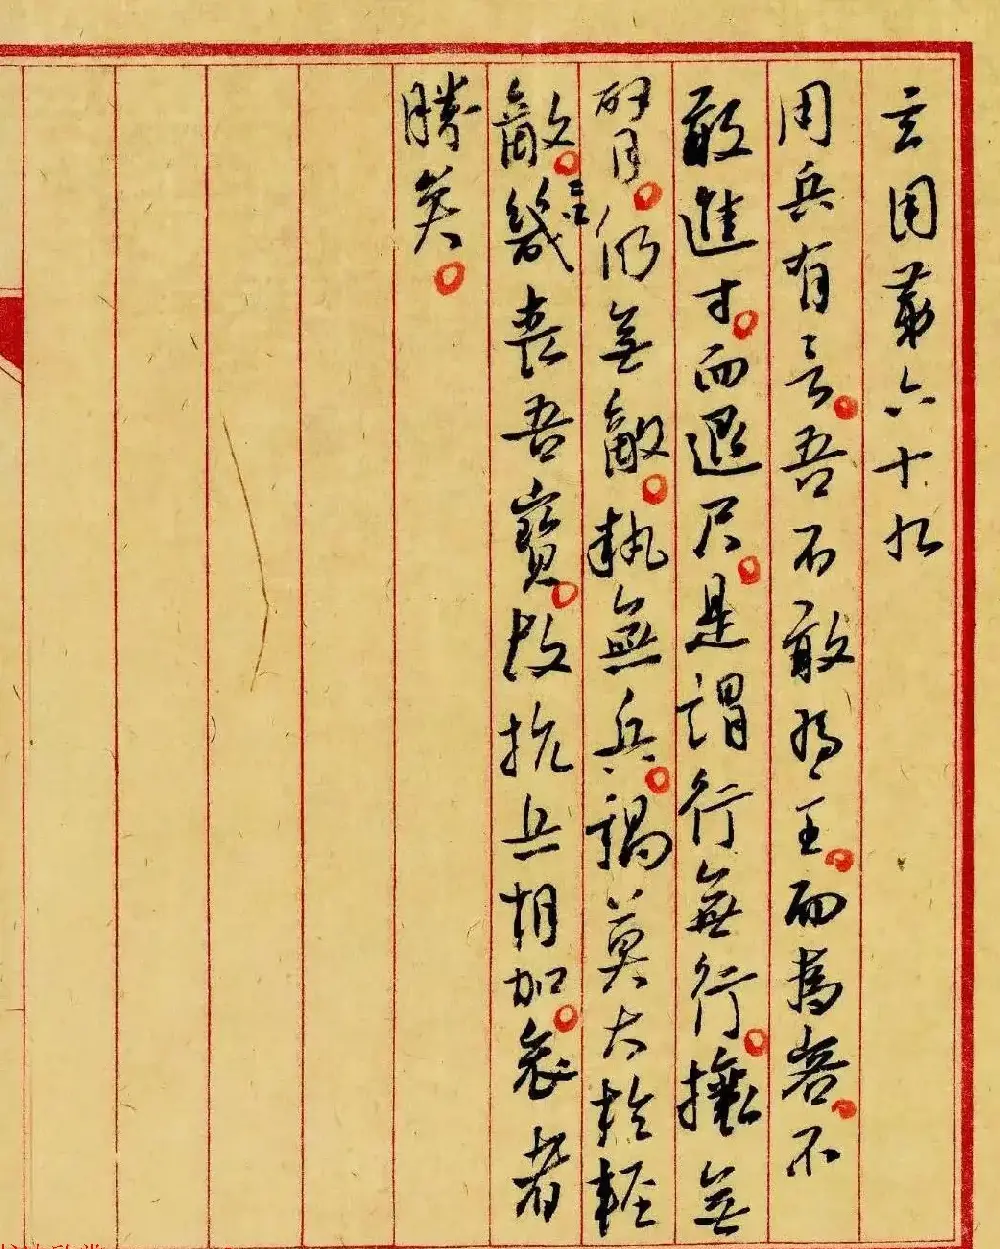 玄用第六十九
用兵有言。吾不敢為主。而為客。不
敢進寸。而退尺。是謂行無行。攘無
臂。仍無敵。執無兵。禍莫大於輕
敵。幾喪吾寶。故抗兵相加。哀者
勝矣。